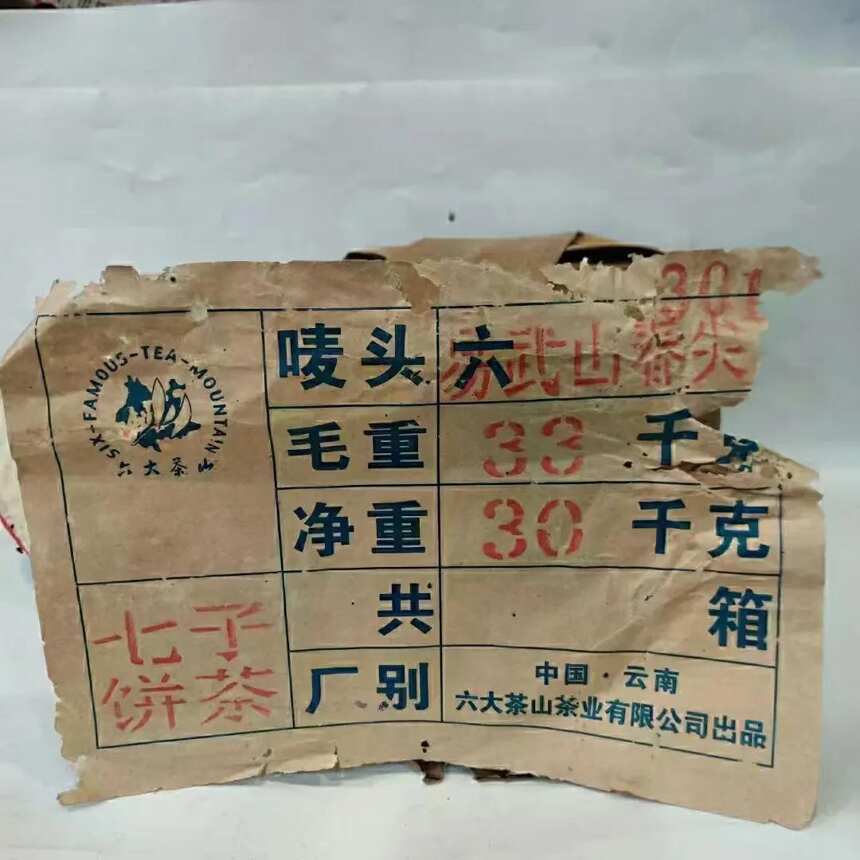 SIX-FAMOUS-TEA-MOUNTAIN
六大茶山
301
唛头 六
易武山春尖
毛重 33 千克
净重 30 千克
共 箱
七子
饼茶
厂别
中国·云南
六大茶山茶业有限公司出品